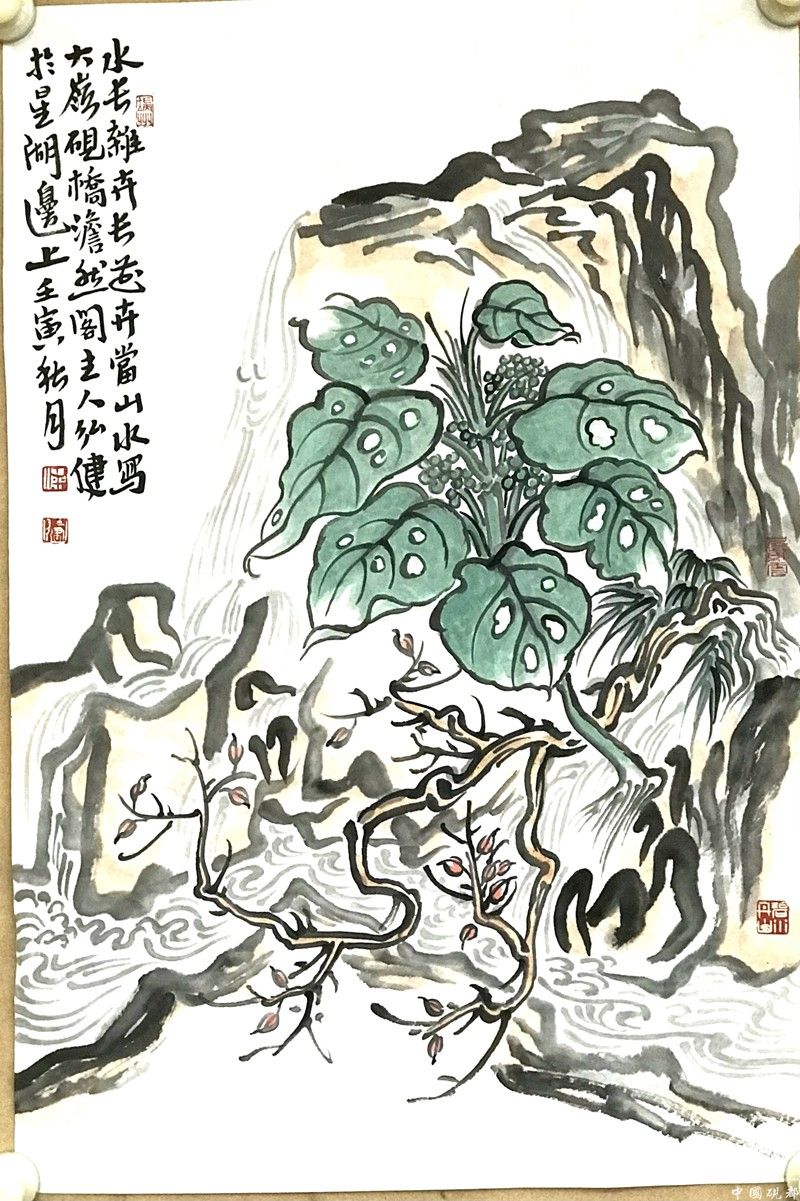 水长離卉长花卉當山水寫
大嶺硯橋澹然閣主人弘健
於星湖邊上壬寅秋月
中國硯都